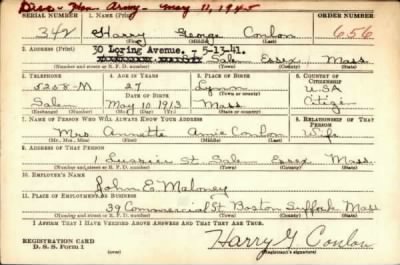 Disc - Hon. Army - May 11, 1945
SERIAL NUMBER 1. NAME (Print) ORDER NUMBER
342 Harry George Conlon 656
(First) (Middle) (Last)
30 Loring Avenue. - 5-13-41.
2. ADDRESS (Print)
Salem Essex Mass.
(Number and street or R. F. D. number) (Town) (County) (State)
3. TELEPHONE 4. AGE IN YEARS 5. PLACE OF BIRTH 6. COUNTRY OF CITIZENSHIP
5258-M 27 Lynn USA
DATE OF BIRTH (Town or county)
Salem May 10 1913 Mass Citizen
(Exchange) (Number) (Mo.) (Day) (Yr.) (State or country)
7. NAME OF PERSON WHO WILL ALWAYS KNOW YOUR ADDRESS 8. RELATIONSHIP OF THAT PERSON
Mrs Annette Annie Conlon Wife
(Mr., Mrs., Miss) (First) (Middle) (Last)
9. ADDRESS OF THAT PERSON
1 Lussier St Salem Essex Mass.
(Number and street or R. F. D. number) (Town) (County) (State)
10. EMPLOYER'S NAME
John E. Maloney
11. PLACE OF EMPLOYMENT OR BUSINESS
39 Commercial St Boston Suffolk Mass
(Number and street or R. F. D. number) (Town) (County) (State)
I AFFIRM THAT I HAVE VERIFIED ABOVE ANSWERS AND THAT THEY ARE TRUE.
REGISTRATION CARD
D. S. S. Form 1
Harry G Conlon
(Registrant's signature)